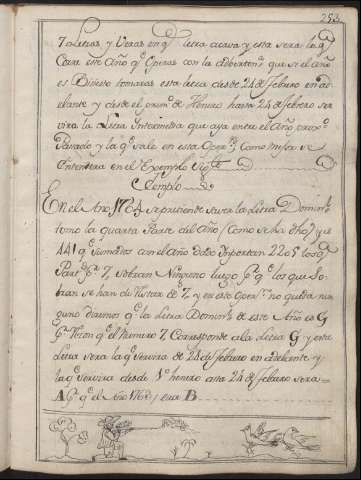 253
7 Letras y Veras en q^e letra acava y esta sera la q^e
Corre este Año q^e Operas con la advertenc^a que si el año
es Bisiesto tomaras esta letra desde 24 de Febrero en ad
elante y desde el prim^o de Henero hasta 24 de febrero ser
vira la Letra Intermedia que aya entre el Año prox^o
Pasado y la q^e sale en esta Oper^n Como mejor se
Entendera en el Exemplo Sig^te
Exemplo
En el Año 1764 se pretende saver la Letra Domin^l
tomo la quarta Parte del Año Como se ha dho y es
441 q^e sumados con el Año dicho Importan 2205 los q^e
Part^s P^r 7 Sobran Ninguno luego P^r q^e los que So
bran se han de Restar de 7 y en esta Oper^n no queda nin
guno diremos q^e la letra Domin^l de este Año es G
P^r Razon q^e el Numero 7 Corresponde ala Letra G y esta
Letra sera la q^e servira de 24 de febrero en adelante y
la q^e servira desde 1^o henero asta 24 de febrero sera
A P^r q^e el Año 1763 fue B